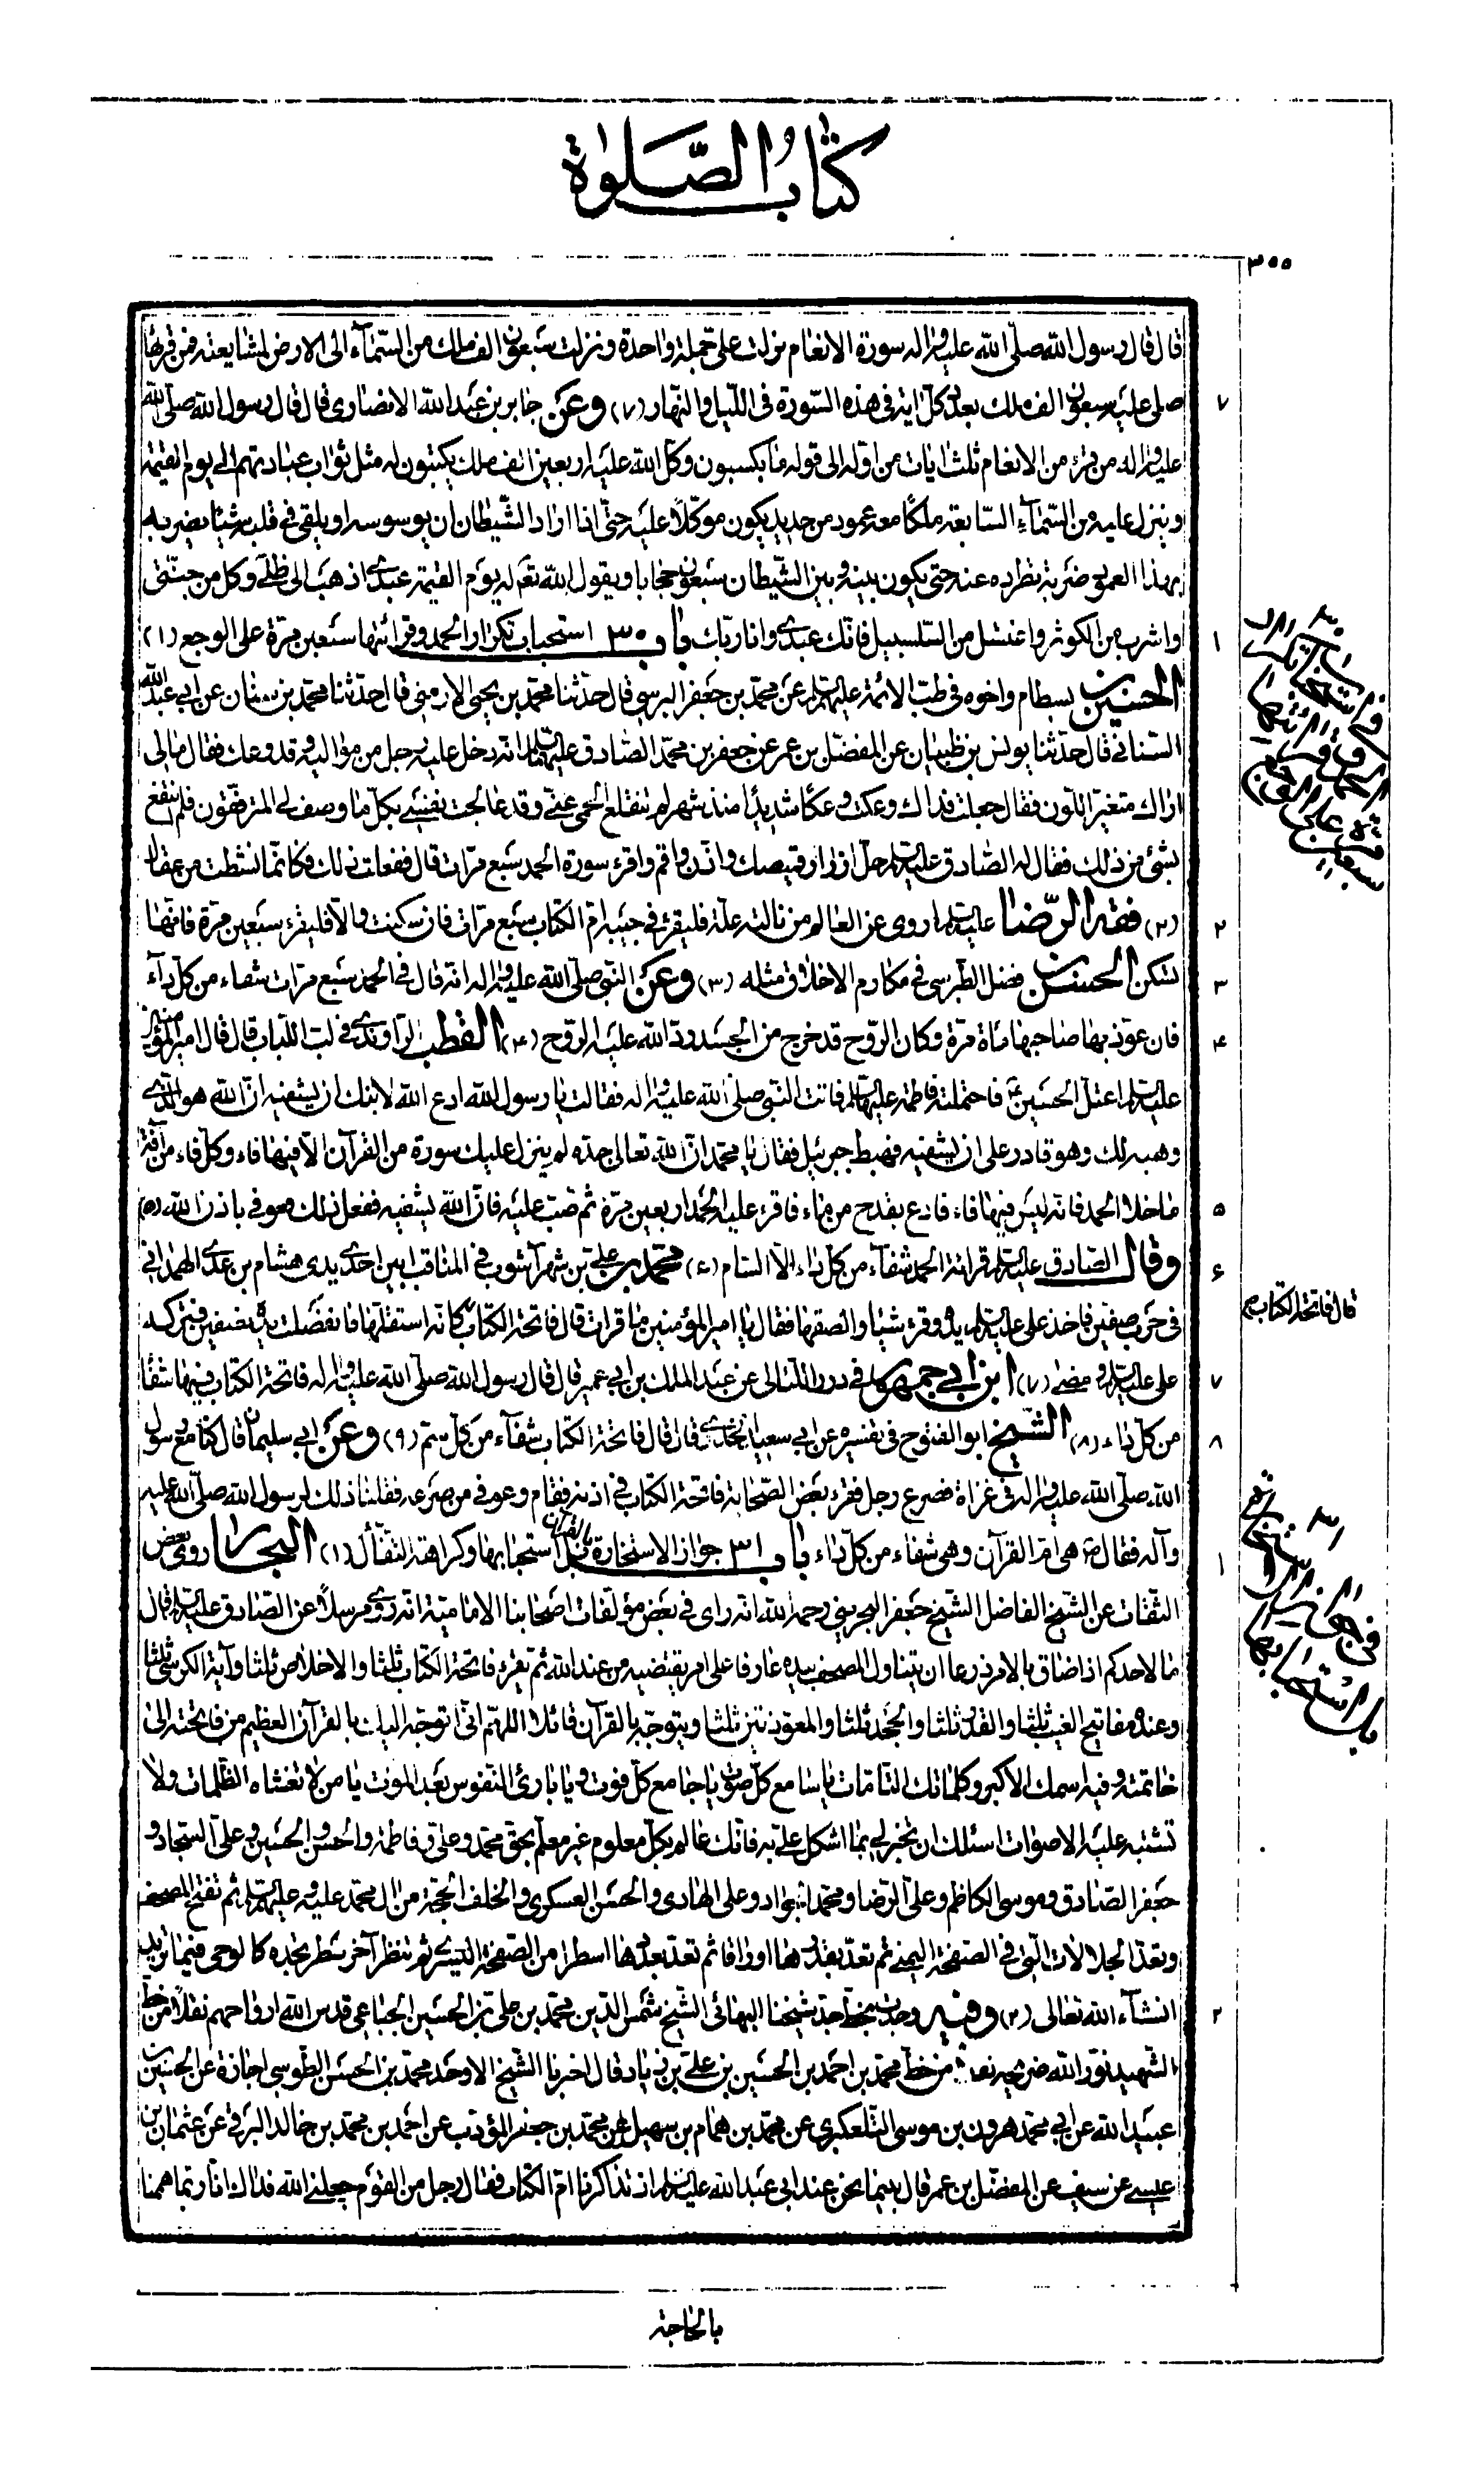 كتاب الصلوة
٣٠٠
قال قال رسول الله صلى الله عليه واله سورة الانعام نزلت على جملة واحدة ونزلت سبعون الف ملك من السماء الى الارض لمشايعته فمن قرئها
صلى عليه سبعون الف ملك بعدد كل اية في هذه السورة في الليل والنهار (٧) وعن جابر بن عبد الله الانصاري قال قال رسول الله صلى الله
عليه واله من قرء من الانعام ثلث ايات من اوله الى قوله ما يكسبون وكل الله عليه اربعين الف ملك يكتبون له مثل ثواب عبادتهم الى يوم القيمة
وينزل عليه من السماء السابعة ملكا معه عمود من حديد يكون موكلا عليه حتى اذا اراد الشيطان ان يوسوسه او يلقي في قلبه شيئا يضربه
بهذا العمود ضربة تطرده عنه حتى يكون بينه وبين الشيطان سبعون حجابا ويقول الله تع له يوم القيمة عبدي اذهب الى ظلي وكل من جنتي
واشرب من الكوثر واغتسل من السلسبيل فانك عبدي وانا ربك باب ٣٠ استحباب تكرار الحمد وقرائتها سبعين مرة على الوجع (١)
الحسين بن بسطام واخوه في طب الائمة عليهم السلام عن محمد بن جعفر البرسي قال حدثنا محمد بن يحيى الارمني قال حدثنا محمد بن سنان عن ابي عبد الله
السناني قال حدثنا يونس بن ظبيان عن المفضل بن عمر عن جعفر بن محمد الصادق عليهما السلام انه دخل عليه رجل من مواليه وقد وعك فقال مالي
اراك متغير اللون فقال جعلت فداك وعكت وعكا شديدا منذ شهر لم تنقلع الحمى عني وقد عالجت نفسي بكل ما وصف لي المترفقون فلم انتفع
بشئ من ذلك فقال له الصادق عليه السلام حل ازرار قميصك واذن واقم واقرء سورة الحمد سبع مرات قال ففعلت ذلك فكانما نشطت من عقال
(٢) فقه الرضا عليه السلام اروى عن العالم من نالته علة فليقرء في جيبه ام الكتاب سبع مرات فان سكنت والا فليقرء سبعين مرة فانها
تسكن الحسن بن فضل الطبرسي في مكارم الاخلاق مثله (٣) وعن النبي صلى الله عليه واله انه قال في الحمد سبع مرات شفاء من كل داء
فان عوذ بها صاحبها مأة مرة وكان الروح قد خرج من الجسد رد الله عليه الروح (٤) القطب الراوندي في لب اللباب قال قال امير المؤمنين
عليه السلام اعتل الحسين ع فاحتملته فاطمة عليها السلام فاتت النبي صلى الله عليه واله فقالت يا رسول الله ادع الله لابنك ان يشفيه ان الله هو الذي
وهبه لك وهو قادر على ان يشفيه فهبط جبرئيل فقال يا محمد ان الله تعالى جده لم ينزل عليك سورة من القرآن الا فيها فاء وكل فاء من آفة
ما خلا الحمد فانه ليس فيها فاء فادع بقدح من ماء فاقرء عليه الحمد اربعين مرة ثم صب عليه فان الله يشفيه ففعل ذلك فعوفي باذن الله (٥)
وقال الصادق عليه السلام قرائة الحمد شفاء من كل داء الا السام (٦) محمد بن علي بن شهرآشوب في المناقب ابين احدى يدي هشام بن عدي الهمداني
في حرب صفين فاخذ علي عليه السلام يده وقرء شيئا والصقها فقال يا امير المؤمنين ما قرات قال فاتحة الكتاب كانه استقلها فانفصلت يده نصفين فتركه
علي عليه السلام ومضى (٧) ابن ابي جمهور في درر اللئالي عن عبد الملك بن ابي عمير قال قال رسول الله صلى الله عليه واله فاتحة الكتاب فيها شفاء
من كل داء (٨) الشيخ ابو الفتوح في تفسيره عن ابي سعيد الخدري قال قال فاتحة الكتاب شفاء من كل سم (٩) وعن ابي سليمان قال كنا مع رسول
الله صلى الله عليه واله في غزاة فصرع رجل فقرء بعض الصحابة فاتحة الكتاب في اذنه فقام وعوفي من صرعه فقلنا ذلك لرسول الله صلى الله عليه
وآله فقال ص هي ام القرآن وهي شفاء من كل داء باب ٣١ جواز الاستخارة بالقرآن بل استحبابها وكراهة التفأل (١) البحار روى بعض
الثقات عن الشيخ الفاضل الشيخ جعفر البحريني رحمه الله انه راى في بعض مؤلفات اصحابنا الامامية انه روى مرسلا عن الصادق عليه السلام قال
ما لاحدكم اذا ضاق بالامر ذرعا ان يتناول المصحف بيده عازفا على امر يقتضيه من عند الله ثم يقرء فاتحة الكتاب ثلثا والاخلاص ثلثا وآية الكرسي ثلثا
وعنده مفاتيح الغيب ثلثا والقدر ثلثا والجحد ثلثا والمعوذتين ثلثا ويتوجه بالقرآن قائلا اللهم اني اتوجه اليك بالقرآن العظيم من فاتحته الى
خاتمته وفيه اسمك الاكبر وكلماتك التامات يا سامع كل صوت يا جامع كل فوت ويا بارئ النفوس بعد الموت يا من لا تغشاه الظلمات ولا
تشتبه عليه الاصوات اسئلك ان تخير لي بما اشكل علي به فانك عالم بكل معلوم غير معلم بحق محمد وعلي وفاطمة والحسن والحسين وعلي السجاد و
جعفر الصادق وموسى الكاظم وعلي الرضا ومحمد الجواد وعلي الهادي والحسن العسكري والخلف الحجة من ال محمد عليه وعليهم السلام ثم تفتح المصحف
وتعد الجلالات التي في الصفحة اليمنى ثم تعد بقدرها اوراقا ثم تعد بعددها اسطرا من الصفحة اليسرى ثم تنظر آخر سطر تجده كالوحي فيما تريد
انشاء الله تعالى (٢) وفيه وجدت بخط جد شيخنا البهائي الشيخ شمس الدين محمد بن علي بن الحسين الجباعي قدس الله ارواحهم نقلا من خط
الشهيد نور الله ضريحه نقلا من خط محمد بن احمد بن الحسين بن علي بن زياد قال اخبرنا الشيخ الاوحد محمد بن الحسن الطوسي اجازة عن الحسين بن
عبيد الله عن ابي محمد هرون بن موسى التلعكبري عن محمد بن همام بن سهيل عن محمد بن جعفر المؤدب عن احمد بن محمد بن خالد البرقي عن عثمان بن
عيسى عن سيف عن المفضل بن عمر قال بينما نحن عند ابي عبد الله عليه السلام اذ تذاكرنا ام الكتاب فقال رجل من القوم جعلني الله فداك انا ربما هممنا
٧
١
٢
٣
٤
٥
٦
٧
٨
١
٢
٣٠
في استحباب تكرار
الحمد وقرائتها
سبعين مرة على الوجع
قال فاتحة الكتاب
٣١
في جواز الاستخارة
بل استحبابها
بالحاجة